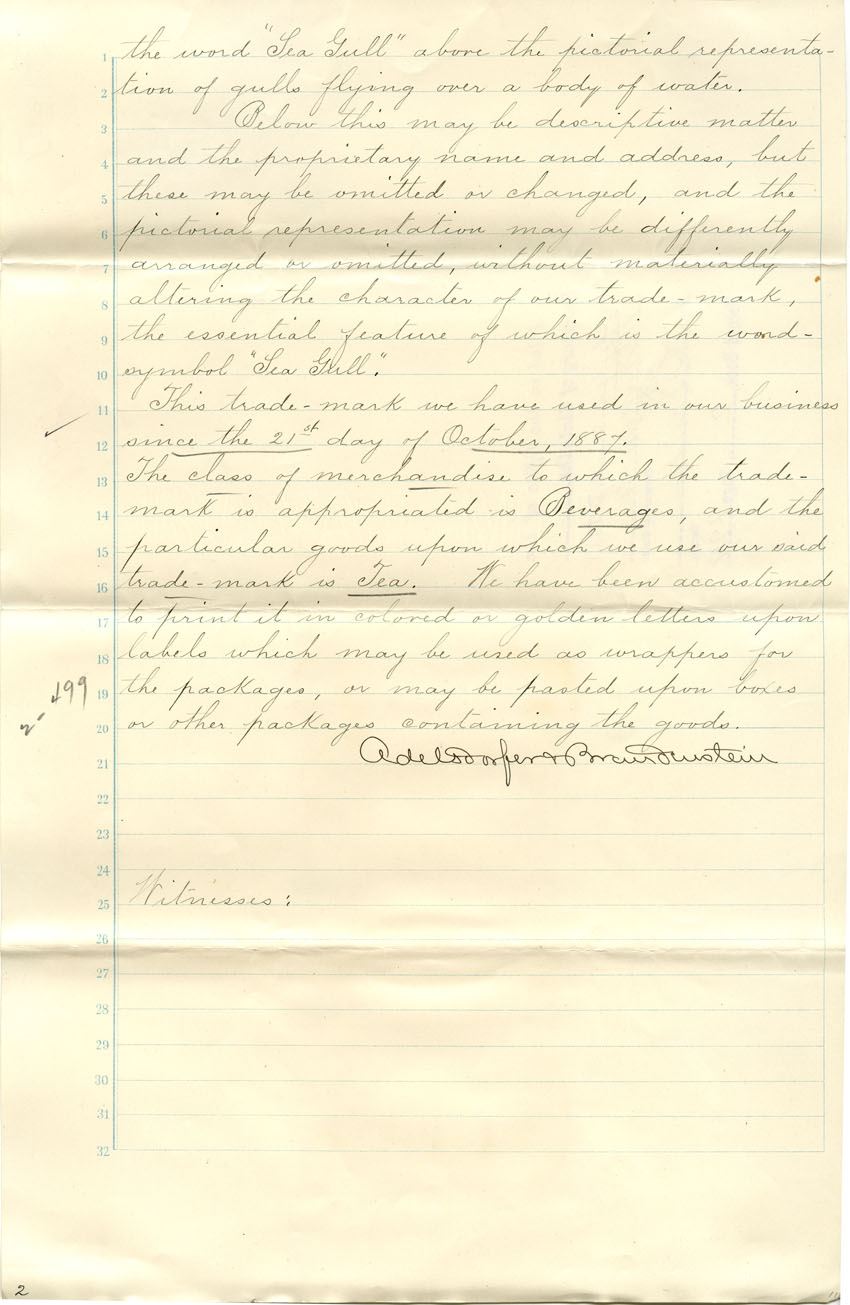 1 the word "Sea Gull" above the pictorial representa-
2 tion of gulls flying over a body of water.
3 Below this may be descriptive matter
4 and the proprietary name and address, but
5 these may be omitted or changed, and the
6 pictorial representation may be differently
7 arranged or omitted, without materially
8 altering the character of our trade-mark,
9 the essential feature of which is the word-
10 symbol "Sea Gull".
11 This trade-mark we have used in our business
12 since the 21st day of October, 1887.
13 The class of merchandise to which the trade-
14 mark is appropriated is Beverages, and the
15 particular goods upon which we use our said
16 trade-mark is Tea. We have been accustomed
17 to print it in colored or golden letters upon
18 labels which may be used as wrappers for
19 the packages, or may be pasted upon boxes
20 or other packages containing the goods.
21 Adelsdorfer & Brandenstein
22
23
24
25 Witnesses:
26
27
28
29
30
31
32
2